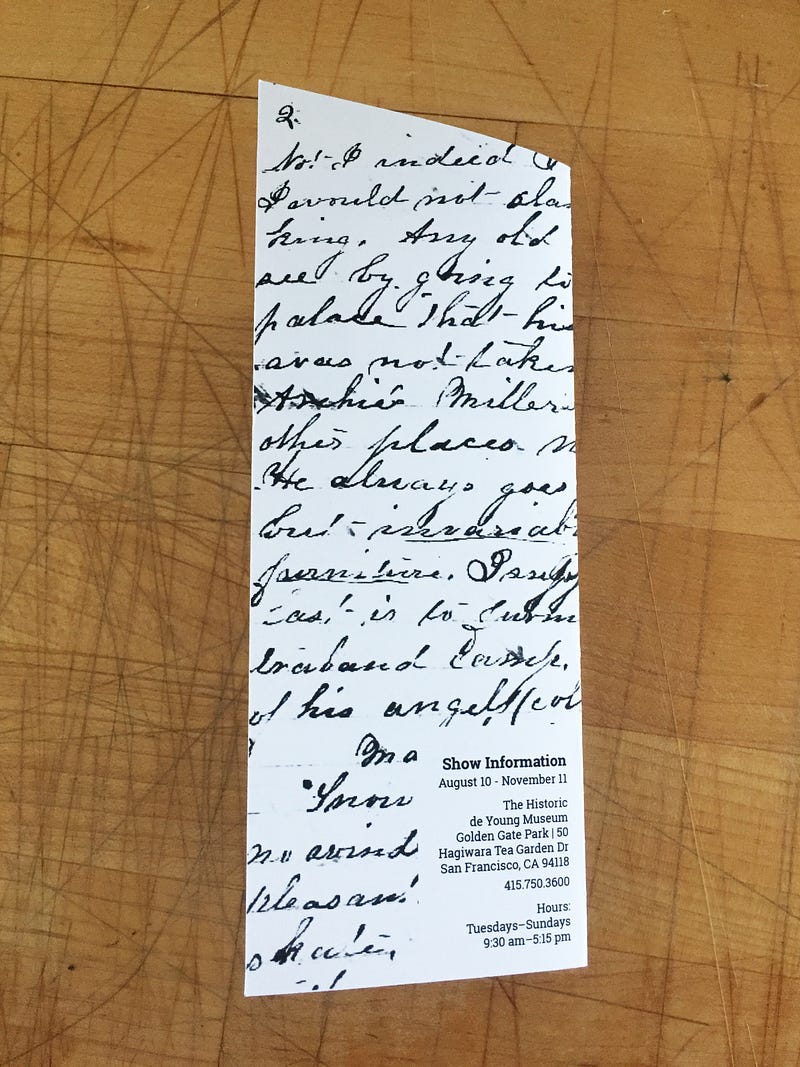 2.
No! I indeed
I would not
king. Any old
see by going to
palace that his
was not taken
Archie Miller
other places
He always goes
but - invariab
furniture. I
is to turn
traband Camp.
of his angels (col
Ma
Snow
no wind
pleasant
skatein
Show Information
August 10 - November 11
The Historic
de Young Museum
Golden Gate Park | 50
Hagiwara Tea Garden Dr
San Francisco, CA 94118
415.750.3600
Hours:
Tuesdays–Sundays
9:30 am–5:15 pm